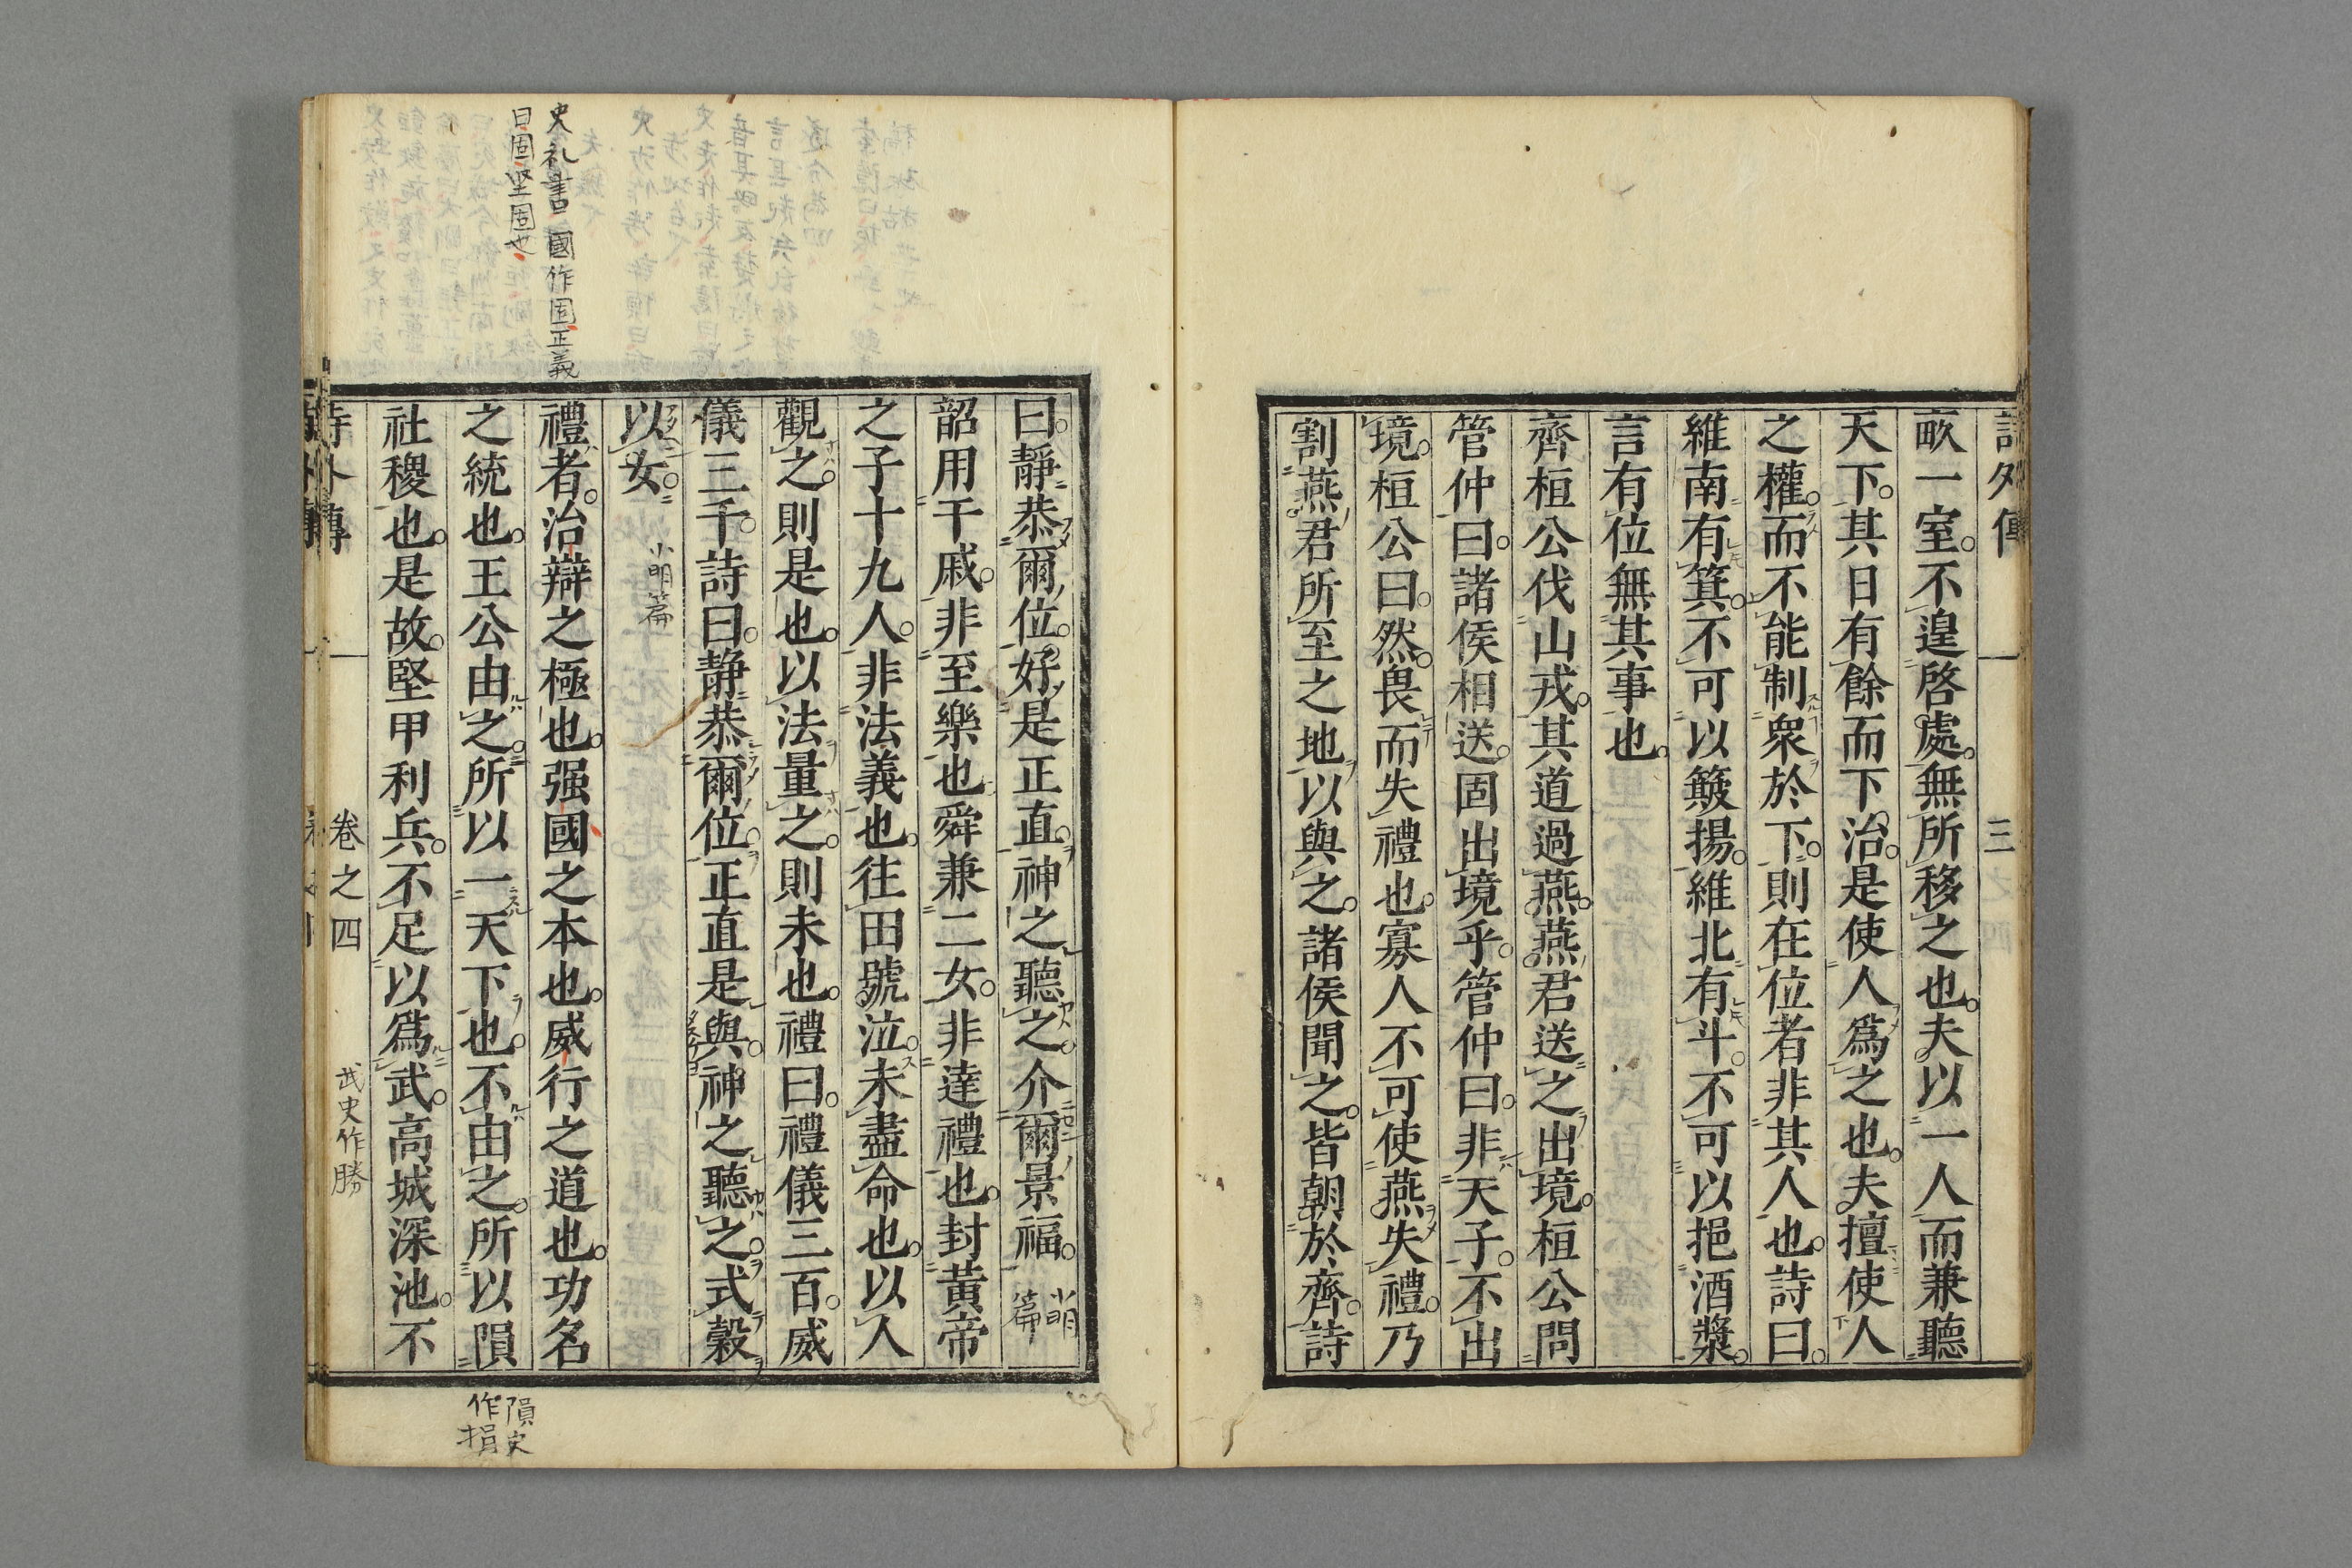 畝一室。不遑啓處。無所移之也。夫以一人而兼聽
天下。其日有餘而下治。是使人爲之也。夫擅使人
之權。而不能制衆於下。則在位者非其人也。詩曰。
維南有箕。不可以簸揚。維北有斗。不可以挹酒漿。
言有位無其事也。
齊桓公伐山戎。其道過燕。燕君送之出境。桓公問
管仲曰。諸侯相送。固出境乎。管仲曰。非天子。不出
境。桓公曰。然。畏而失禮也。寡人不可使燕失禮。乃
割燕君所至之地以與之。諸侯聞之。皆朝於齊。詩
曰。靜恭爾位。好是正直。神之聽之。介爾景福。小明篇
韶用干戚。非至樂也。舜兼二女。非達禮也。封黃帝
之子十九人。非法義也。往田號泣。未盡命也。以人
觀之。則是也。以法量之。則未也。禮曰。禮儀三百。威
儀三千。詩曰。靜恭爾位。正直是與。神之聽之。式穀
以女。小明篇
禮者。治辯之極也。强國之本也。威行之道也。功名
之統也。王公由之。所以一天下也。不由之。所以隕
社稷也。是故。堅甲利兵。不足以爲武。高城深池。不
詩外傳 卷之四
史礼書國作固正義
曰固堅固也
武史作勝
隕史
作損